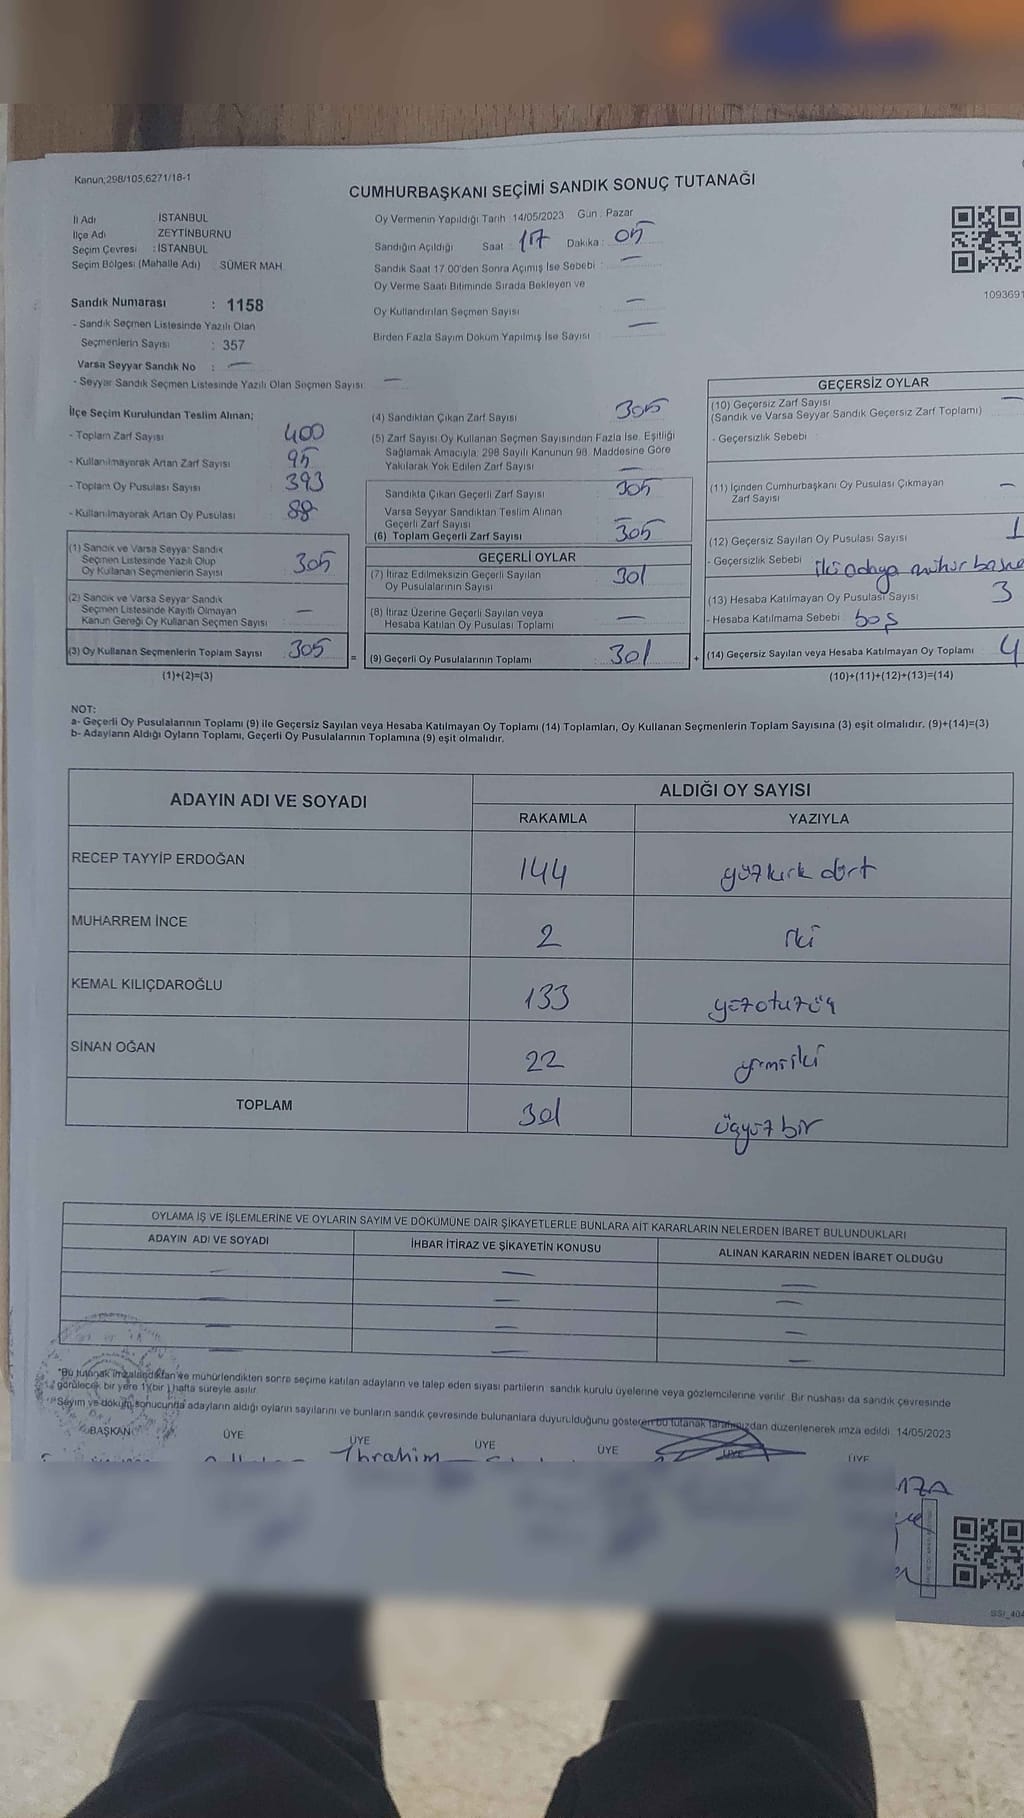 Kanun;298/105,6271/18-1
CUMHURBAŞKANI SEÇİMİ SANDIK SONUÇ TUTANAĞI
İl Adı İSTANBUL
İlçe Adı ZEYTİNBURNU
Seçim Çevresi : İSTANBUL
Seçim Bölgesi (Mahalle Adı) SÜMER MAH
Oy Vermenin Yapıldığı Tarih 14/05/2023 Gün : Pazar
Sandığın Açıldığı Saat : 17 Dakika : 05
Sandık Saat 17 00'den Sonra Açımış İse Sebebi : —
Oy Verme Saati Bitiminde Sırada Bekleyen ve
Oy Kullandırılan Seçmen Sayısı —
Birden Fazla Sayım Döküm Yapılmış İse Sayısı —
1093691
Sandık Numarası : 1158
- Sandık Seçmen Listesinde Yazılı Olan
Seçmenlerin Sayısı : 357
Varsa Seyyar Sandık No : —
- Seyyar Sandık Seçmen Listesinde Yazılı Olan Seçmen Sayısı: —
İlçe Seçim Kurulundan Teslim Alınan;
- Toplam Zarf Sayısı 400
- Kullanılmayarak Artan Zarf Sayısı 95
- Toplam Oy Pusulası Sayısı 393
- Kullanılmayarak Artan Oy Pusulası 88
(1) Sandık ve Varsa Seyyar Sandık
Seçmen Listesinde Yazılı Olup
Oy Kullanan Seçmenlerin Sayısı 305
(2) Sandık ve Varsa Seyyar Sandık
Seçmen Listesinde Kayıtlı Olmayan
Kanun Gereği Oy Kullanan Seçmen Sayısı —
(3) Oy Kullanan Seçmenlerin Toplam Sayısı 305
(1)+(2)=(3)
(4) Sandıktan Çıkan Zarf Sayısı 305
(5) Zarf Sayısı Oy Kullanan Seçmen Sayısından Fazla İse, Eşitliği
Sağlamak Amacıyla; 298 Sayılı Kanunun 98. Maddesine Göre
Yakılarak Yok Edilen Zarf Sayısı —
Sandıkta Çıkan Geçerli Zarf Sayısı 305
Varsa Seyyar Sandıktan Teslim Alınan
Geçerli Zarf Sayısı
(6) Toplam Geçerli Zarf Sayısı 305
GEÇERLİ OYLAR
(7) İtiraz Edilmeksizin Geçerli Sayılan
Oy Pusulalarının Sayısı 301
(8) İtiraz Üzerine Geçerli Sayılan veya
Hesaba Katılan Oy Pusulası Toplamı —
= (9) Geçerli Oy Pusulalarının Toplamı 301
GEÇERSİZ OYLAR
(10) Geçersiz Zarf Sayısı —
(Sandık ve Varsa Seyyar Sandık Geçersiz Zarf Toplamı)
- Geçersizlik Sebebi :
(11) İçinden Cumhurbaşkanı Oy Pusulası Çıkmayan
Zarf Sayısı —
(12) Geçersiz Sayılan Oy Pusulası Sayısı 1
- Geçersizlik Sebebi : iki adaya mühür basma
(13) Hesaba Katılmayan Oy Pusulası Sayısı 3
- Hesaba Katılmama Sebebi boş
+ (14) Geçersiz Sayılan veya Hesaba Katılmayan Oy Toplamı 4
(10)+(11)+(12)+(13)=(14)
NOT:
a- Geçerli Oy Pusulalarının Toplamı (9) ile Geçersiz Sayılan veya Hesaba Katılmayan Oy Toplamı (14) Toplamları, Oy Kullanan Seçmenlerin Toplam Sayısına (3) eşit olmalıdır. (9)+(14)=(3)
b- Adayların Aldığı Oyların Toplamı, Geçerli Oy Pusulalarının Toplamına (9) eşit olmalıdır.
ADAYIN ADI VE SOYADI ALDIĞI OY SAYISI
RAKAMLA YAZIYLA
RECEP TAYYİP ERDOĞAN 144 yüzkırk dört
MUHARREM İNCE 2 iki
KEMAL KILIÇDAROĞLU 133 yüzotuzüç
SİNAN OĞAN 22 yirmiiki
TOPLAM 301 üçyüz bir
OYLAMA İŞ VE İŞLEMLERİNE VE OYLARIN SAYIM VE DÖKÜMÜNE DAİR ŞİKAYETLERLE BUNLARA AİT KARARLARIN NELERDEN İBARET BULUNDUKLARI
ADAYIN ADI VE SOYADI İHBAR İTİRAZ VE ŞİKAYETİN KONUSU ALINAN KARARIN NEDEN İBARET OLDUĞU
— — —
— — —
— — —
— — —
*Bu tutanak imzalandıktan ve mühürlendikten sonra seçime katılan adayların ve talep eden siyasi partilerin sandık kurulu üyelerine veya gözlemcilerine verilir. Bir nüshası da sandık çevresinde
görülecek bir yere 1 (bir) hafta süreyle asılır.
*Sayım ve döküm sonucunda adayların aldığı oyların sayılarını ve bunların sandık çevresinde bulunanlara duyurulduğunu gösteren bu tutanak tarafımızdan düzenlenerek imza edildi. 14/05/2023
BAŞKAN ÜYE ÜYE ÜYE ÜYE ÜYE ÜYE
İbrahim